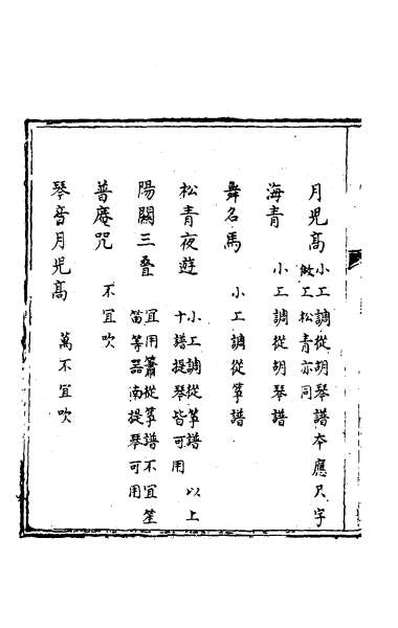 月兒高 小工調從胡琴譜本應尺字
做工松青亦同
海青 小工調從胡琴譜
舞名馬 小工調從箏譜
松青夜遊 小工調從箏譜 以上
十譜提琴皆可用
陽關三叠 宜用簫從箏譜不宜笙
笛等器南提琴可用
普庵咒 不宜吹
琴音月兒高 萬不宜吹